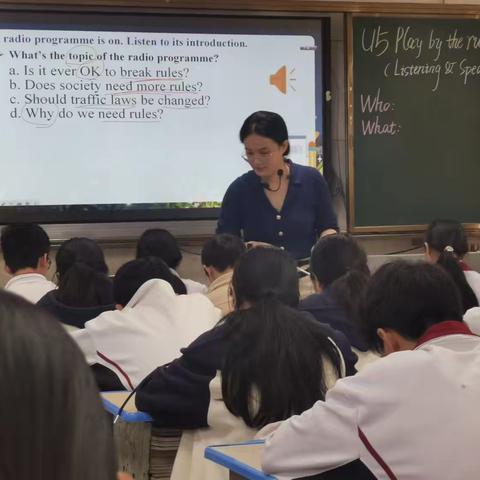 radio programme is on. Listen to its introduction.
What's the topic of the radio programme?
a. Is it ever OK to break rules?
b. Does society need more rules?
c. Should traffic laws be changed?
d. Why do we need rules?
U5 Play by the ru
(Listening & Spea
Who:
What: